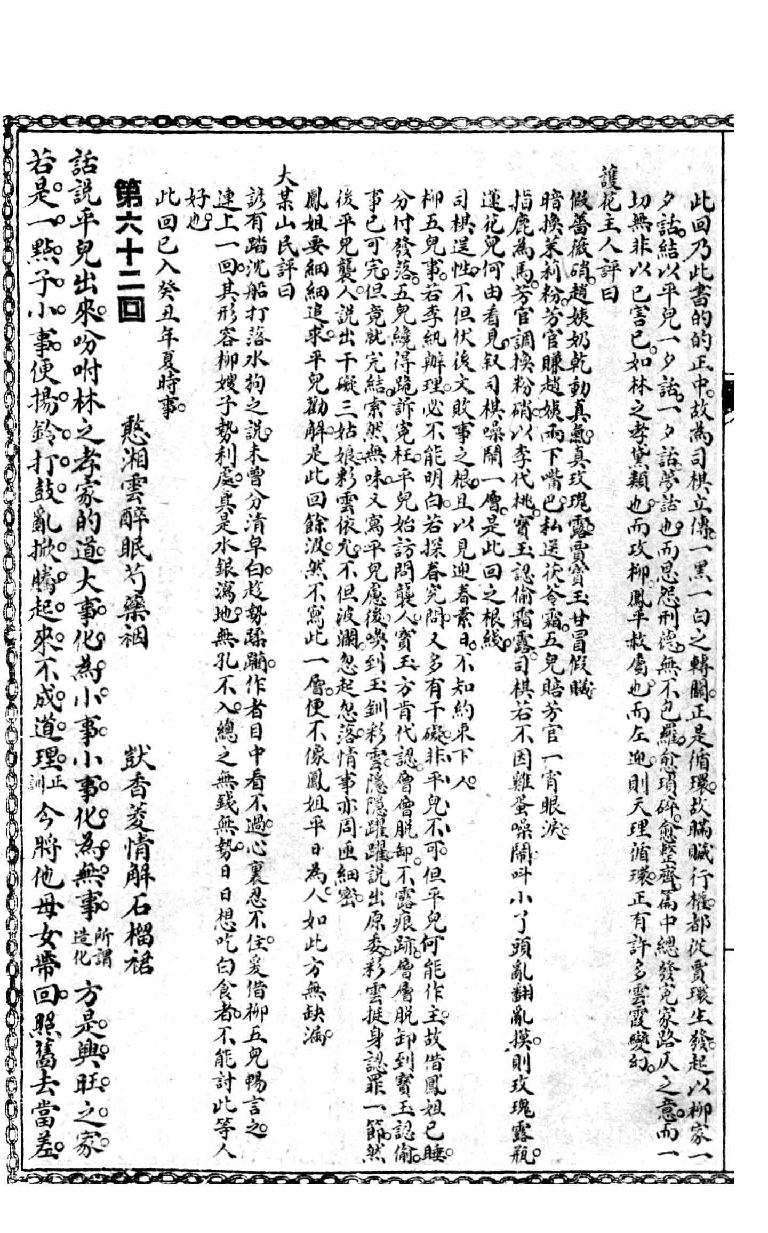 此回乃此書的的正中故為司棋立傳一黑一白之轉關正是循環故瞞贓行權都從賈環生發起以柳家一
夕話結以平兒一夕話一夕話夢話也而恩怨刑德無不包羅愈瑣碎愈整齊篇中總發冤家路仄之意而一
切無非以己害己如林之孝黛類也而攻柳鳳平赦虜也而左迎則天理循環正有許多雲霞變幻
護花主人評曰
做薔薇硝趙姨奶乾動真氣真玫瑰露賈寶玉甘冒假贓
暗換茉莉粉芳官賺趙姨兩下嘴巴私送茯苓霜五兒賠芳官一宵眼淚
指鹿為馬芳官調換粉硝以李代桃寶玉認偷霜露司棋若不因雞蛋噪鬧叫小丫頭亂翻亂摸則玫瑰露瓶
蓮花兒何由看見叙司棋噪鬧一層是此回之根綫
司棋逞性不但伏後文敗事之根且以見迎春素日不知約束下人
柳五兒事若李紈辦理必不能明白若探春究問又多有干礙非平兒不可但平兒何能作主故借鳳姐已睡
分付發落五兒纔得跪訴寃枉平兒始訪問襲人寶玉方肯代認層層脫卸不露痕跡層層脫卸到寶玉認偷
事已可完但竟就完結索然無味又寫平兒慮後喚到玉釧彩雲隱隱躍躍說出原委彩雲挺身認罪一節然
後平兒襲人說出干礙三姑娘彩雲依允不但波瀾忽起忽落情事亦周匝細密
鳳姐要細細追求平兒勸解是此回餘波然不寫此一層便不像鳳姐平日為人如此方無缺漏
大某山民評曰
諺有踹沈船打落水狗之說未曾分清皁白趁勢蹂躪作者目中看不過心裏忍不住爰借柳五兒暢言之
連上一回其形容柳嫂子勢利處真是水銀瀉地無孔不入總之無錢無勢日日想吃白食者不能討此等人
好也
此回已入癸丑年夏時事
第六十二回
憨湘雲醉眠芍藥裀　獃香菱情解石榴裙
話說平兒出來吩咐林之孝家的道大事化為小事小事化為無事所謂造化方是興旺之家
若是一點子小事便揚鈴打鼓亂掀騰起來不成道理正訓今將他母女帶回照舊去當差